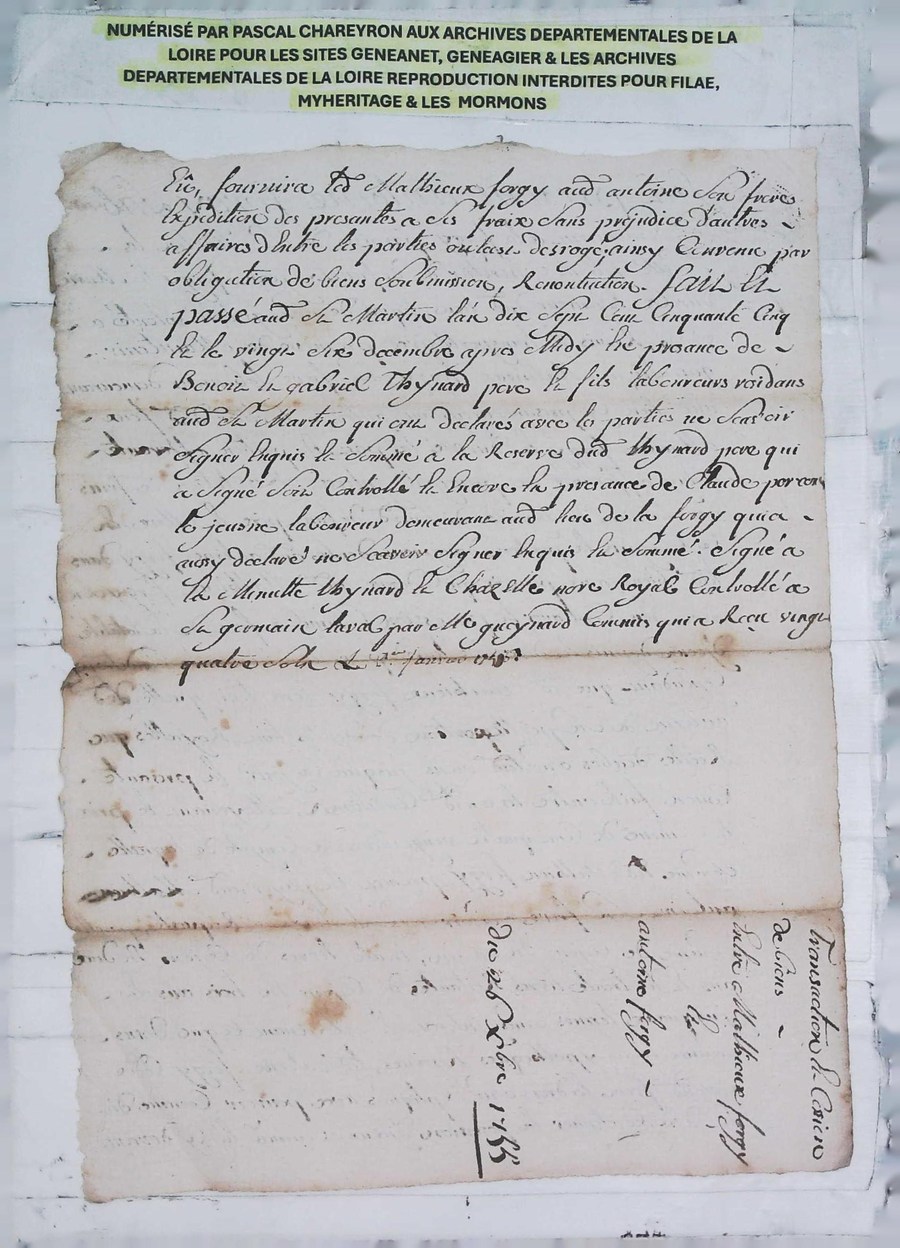 NUMÉRISÉ PAR PASCAL CHAREYRON AUX ARCHIVES DEPARTEMENTALES DE LA
LOIRE POUR LES SITES GENEANET, GENEAGIER & LES ARCHIVES
DEPARTEMENTALES DE LA LOIRE REPRODUCTION INTERDITES POUR FILAE,
MYHERITAGE & LES MORMONS
fournira led Mathieux forgy aud antoine Son frere
Expedition des presantes a ses fraix Sans prejudice d'autres
affaires dEntre les parties desrogé, ainsy Convenu par
obligation de biens Soubmission, Renontiation. fait Et
passé aud St Martin l'an dix Sept Cent Cinquante Cinq
Et le vingt Six decembre apres Midy En presance de
Benoit Et gabriel thynard pere Et fils laboureurs residans
aud St Martin qui ont declarés avec les parties ne Scavoir
Signer Enquis Et Sommé a la Reserve dud thynard pere qui
a Signé Soit Controllé Et Encore En presance de Claude
le jeusne laboureur demeurant aud lieu de la forgy qui a
aussy declaré ne Scavoir Signer Enquis Et Sommé. Signé a
la Minutte thynard Et Chazelle nore Royal Controllé a
St germain laval par Me gueynard Commis qui a Receu vingt
quatre Sols
transaction Et Cession
de biens
Entre Mathieux forgy
Et
antoine forgy
du 26 Xbre 1755